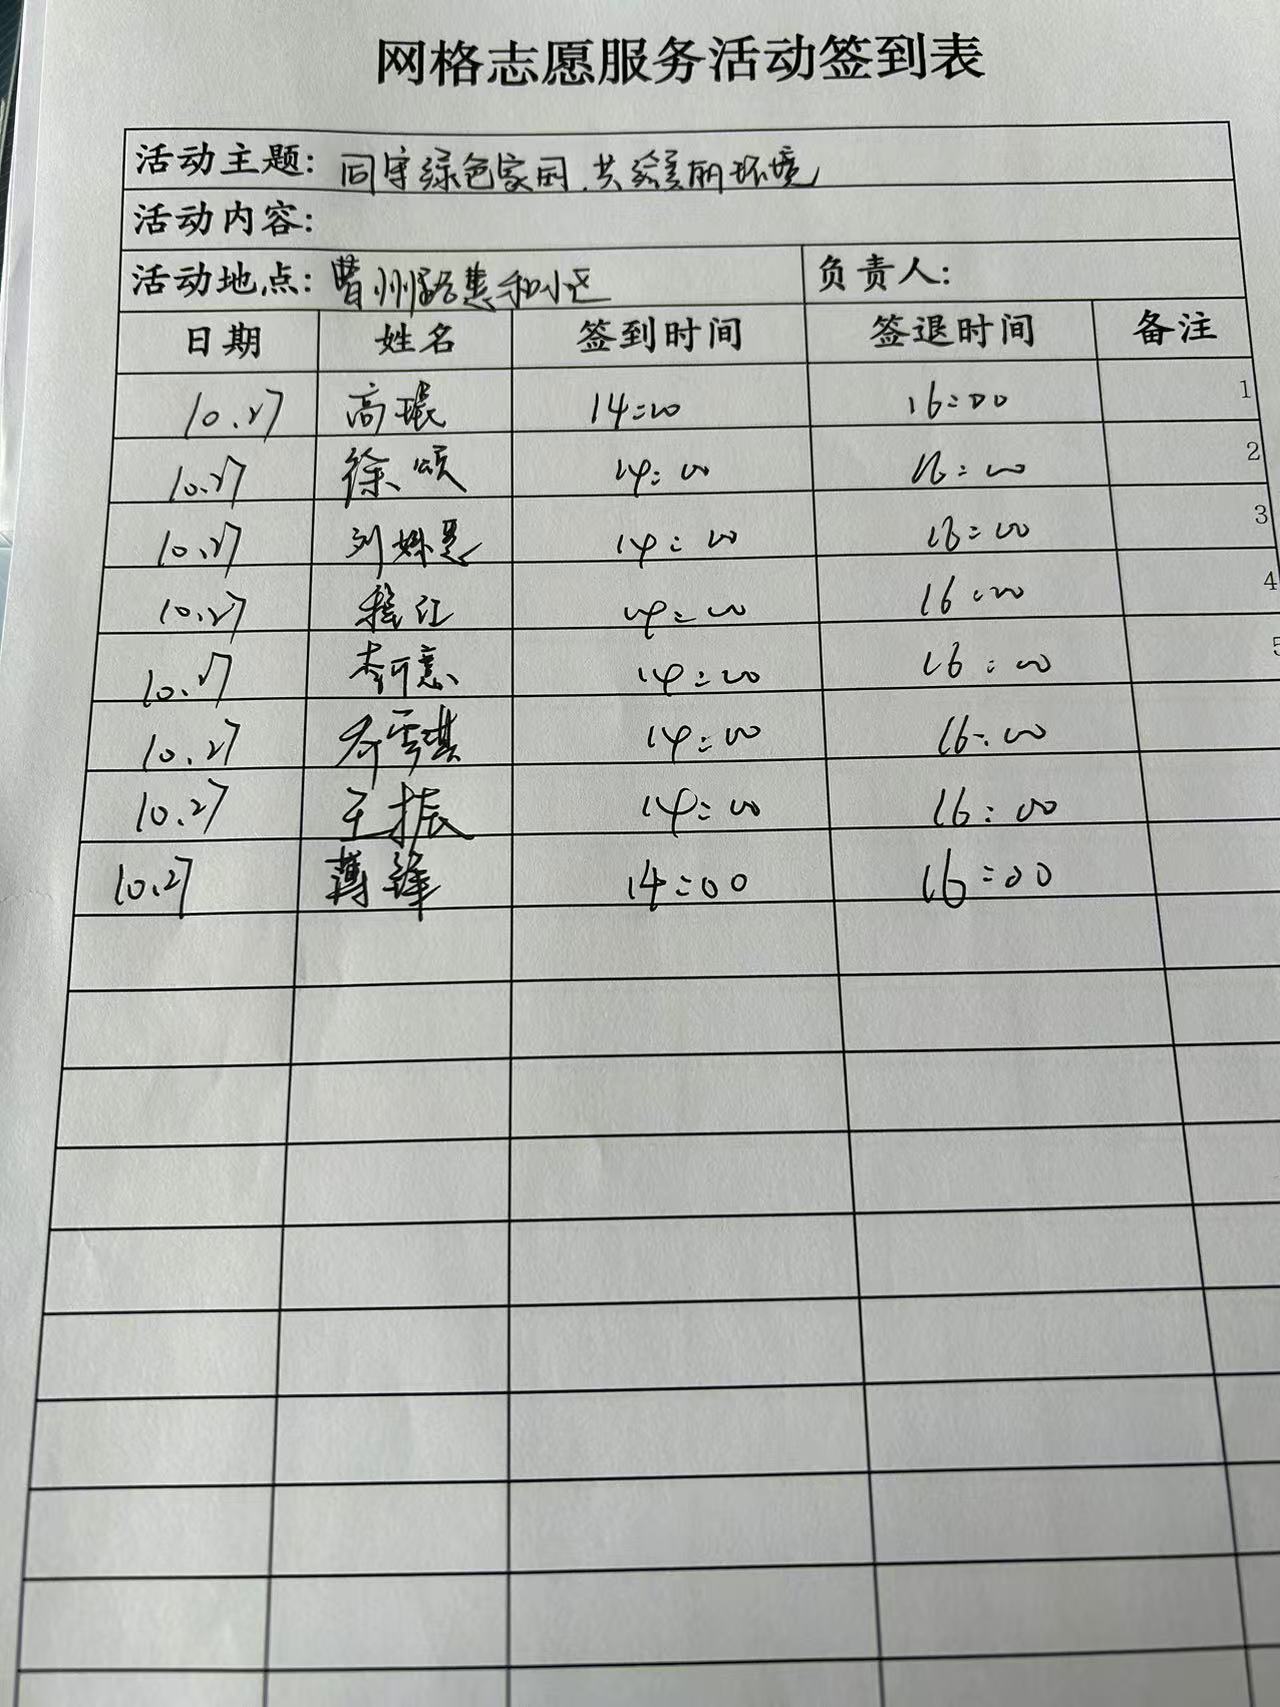 网格志愿服务活动签到表
活动主题: 同守绿色家园,共绘美丽环境
活动内容:
活动地点: 曹州路惠和小区 负责人:
日期 姓名 签到时间 签退时间 备注
10.27 高琨 14:00 16:00 1
10.27 徐颂 14:00 16:00 2
10.27 刘 14:00 16:00 3
10.27 程江 14:00 16:00 4
10.27 李可意 14:00 16:00 5
10.27 乔雪琪 14:00 16:00
10.27 王振 14:00 16:00
10.27 薄锋 14:00 16:00